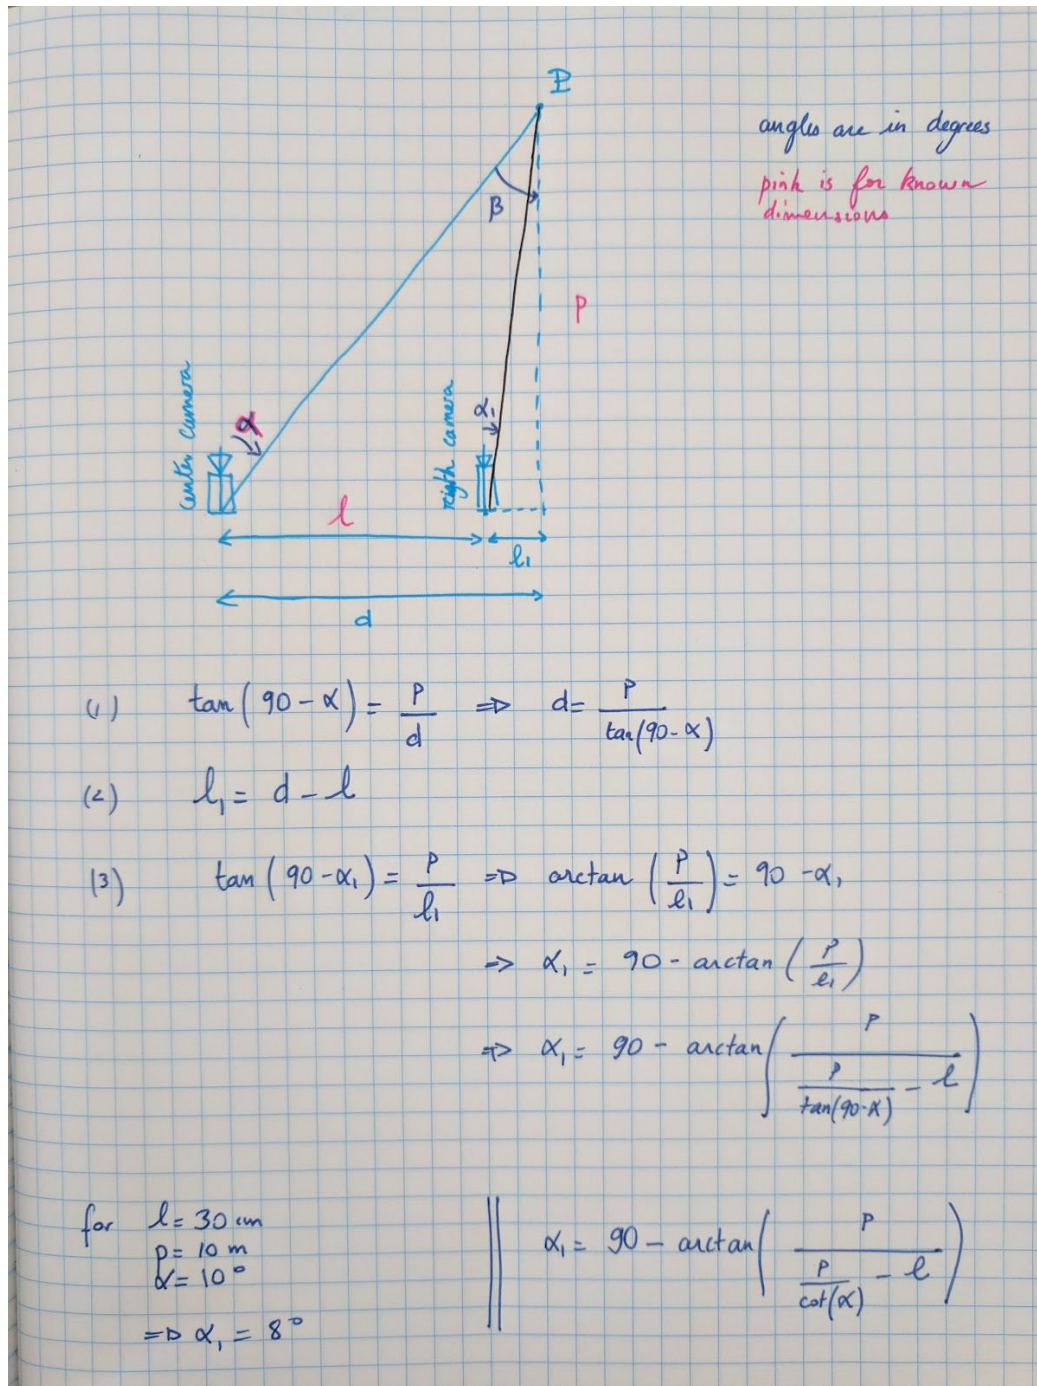 P
angles are in degrees
pink is for known
dimensions
β
P
center camera
α
rigth camera
α₁
l
l₁
d
(1) tan(90-α) = P/d => d = P/tan(90-α)
(2) l₁ = d - l
(3) tan(90-α₁) = P/l₁ => arctan(P/l₁) = 90 - α₁
=> α₁ = 90 - arctan(P/l₁)
=> α₁ = 90 - arctan(P/(P/tan(90-α) - l))
for l = 30 cm
p = 10 m
α = 10°
=> α₁ = 8°
α₁ = 90 - arctan(P/(P/cot(α) - l))